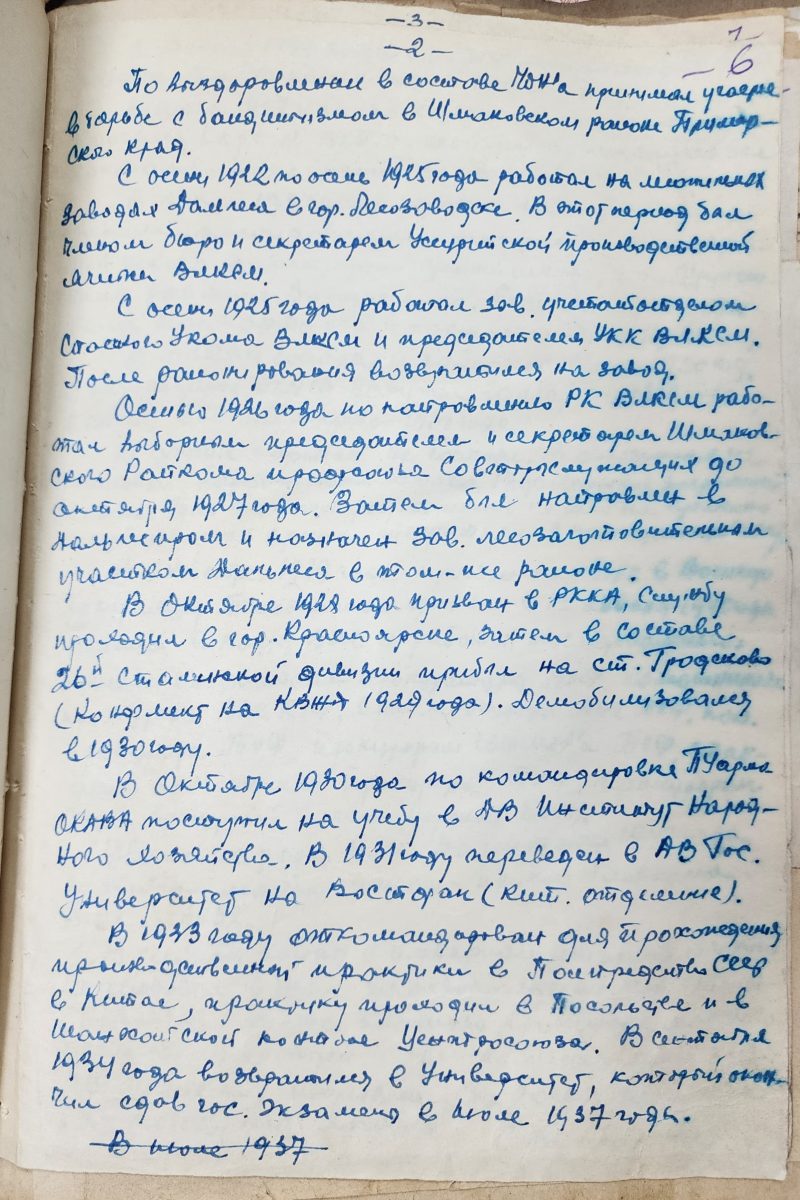 -3-
-2-
7-
-6
По выздоровлении в составе ЧОНа принимал участие
в борьбе с бандитизмом в Шмаковском районе Примор-
ского края.
С осени 1922 по осень 1925 года работал на
заводах Дальлеса в гор. Лесозаводске. В этот период был
членом бюро и секретарем Уссурийской производственной
ячейки ВЛКСМ.
С осени 1925 года работал зав. учетстатотделом
Спасского Укома ВЛКСМ и председателем УКК ВЛКСМ.
После районирования возвратился на завод.
Осенью 1926 года по направлению РК ВЛКСМ рабо-
тал выборным председателем и секретарем Шмаков-
ского Райкома профсоюза Совторгслужащих до
октября 1927 года. Затем был направлен в
и назначен зав. лесозаготовительным
участком Дальлеса в этом-же районе.
В Октябре 1928 года призван в РККА, службу
проходил в гор. Красноярске, затем в составе
26й Сталинской дивизии прибыл на ст. Гродеково
(Конфликт на КВЖД 1929 года). Демобилизовался
в 1930 году.
В Октябре 1930 года по командировке ПУарма
ОКДВА поступил на учебу в ДВ Институт Народ-
ного Хозяйства. В 1931 году переведен в ДВ Гос.
Университет на Востфак (кит. отделение).
В 1933 году откомандирован для прохождения
производственной практики в Полпредство СССР
в Китае, практику проходил в Посольстве и в
Шанхайской конторе Центросоюза. В сентябре
1934 года возвратился в Университет, который окон-
чил сдав гос. экзамены в Июле 1937 года.
В июле 1937